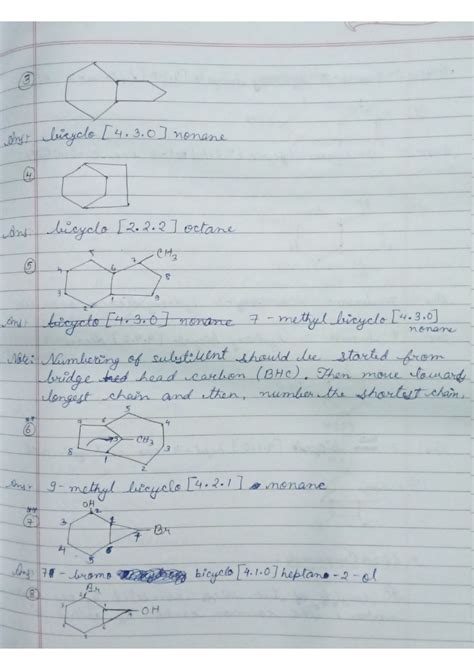 ③
Ans: bicyclo [4.3.0] nonane
④
Ans: bicyclo [2.2.2] octane
⑤ 4 5 6 7 CH₃ 8 3 2 1 9
Ans: bicyclo [4.3.0] nonane 7-methyl bicyclo [4.3.0]
nonane
Note: Numbering of substituent should be started from
bridge head carbon (BHC). Then move towards
longest chain and then, number the shortest chain.
⑥ 7 6 5 4 9 CH₃ 3 8 1 2
Ans: 9-methyl bicyclo [4.2.1] nonane
OH
⑦ 3 2 1 7 Br 4 5 6
Ans: 7-bromo bicyclo [4.1.0] heptano-2-ol
⑧ Br OH